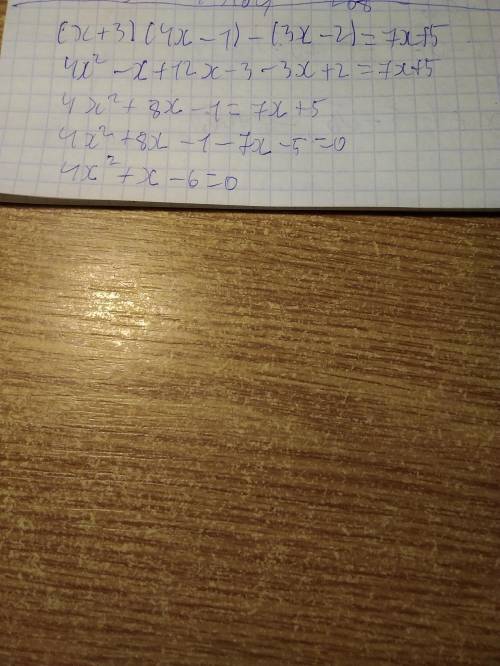 (x+3)(4x-1)-(3x-2)=7x+5
4x²-x+12x-3-3x+2=7x+5
4x²+8x-1=7x+5
4x²+8x-1-7x-5=0
4x²+x-6=0